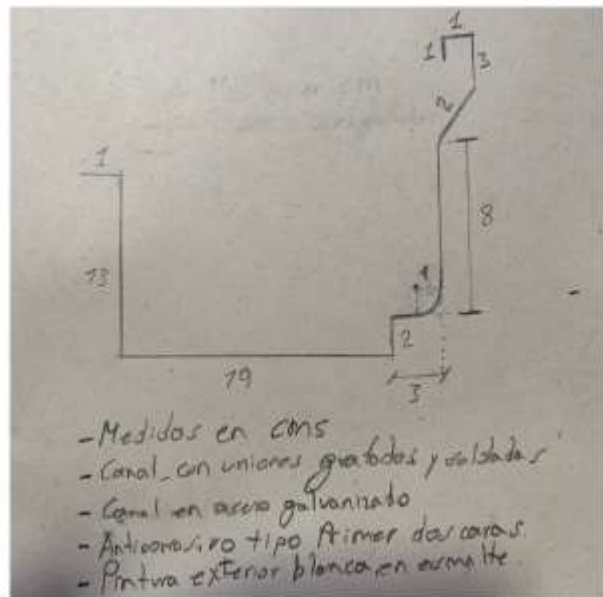 1
1
3
2
1
8
13
1
2
19
3
- Medidas en cms
- Canal con uniones grafadas y soldadas
- Canal en acero galvanizado
- Anticorrosivo tipo Primer dos caras.
- Pintura exterior blanca en esmalte.